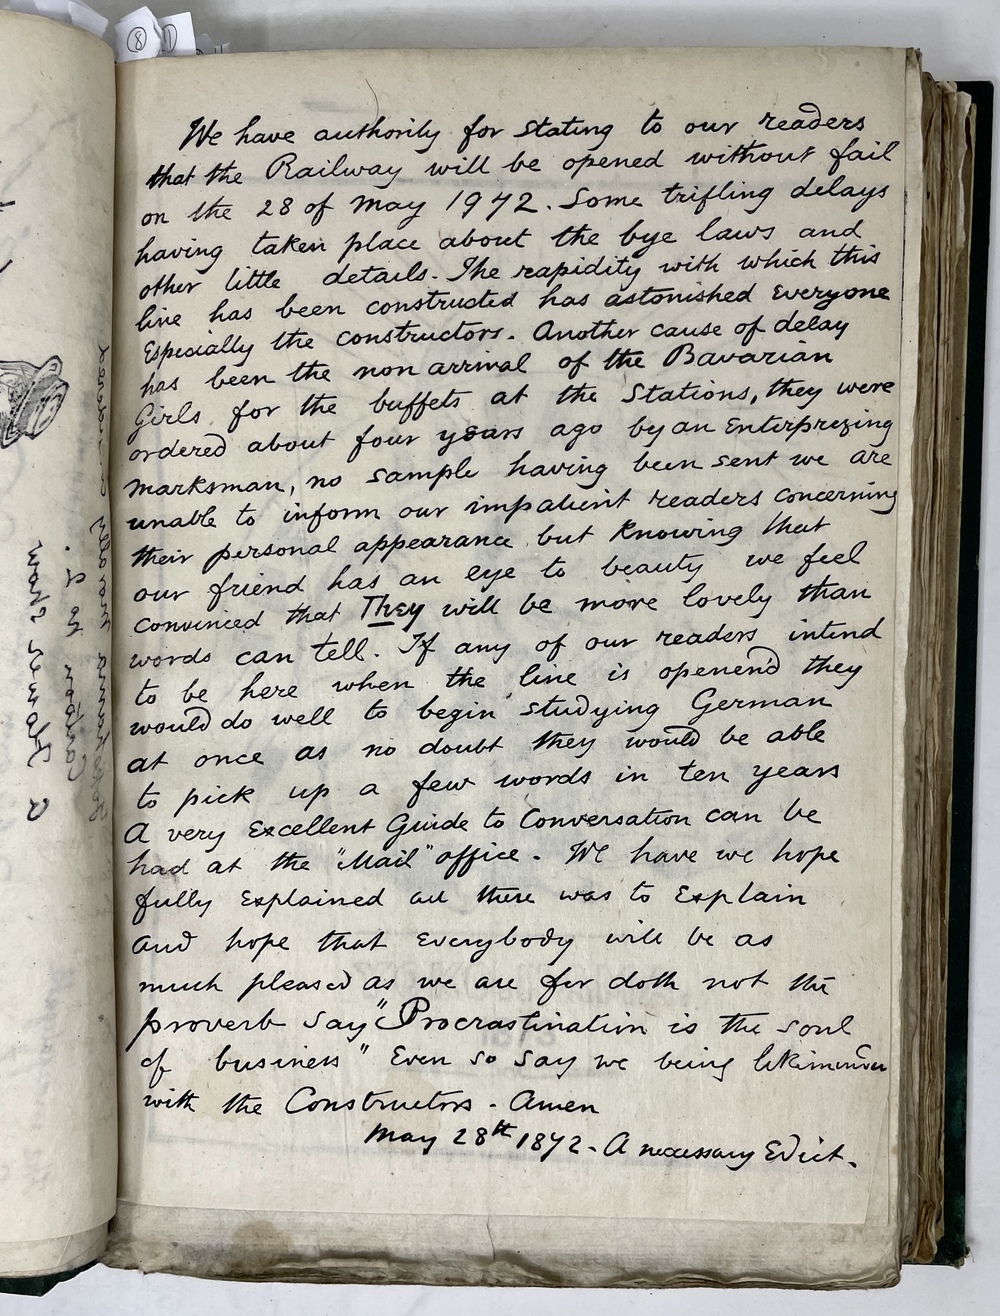 We have authority for stating to our readers
that the Railway will be opened without fail
on the 28 of May 1972. Some trifling delays
having taken place about the bye laws and
other little details. The rapidity with which this
line has been constructed has astonished Everyone
Especially the constructors. Another cause of delay
has been the non arrival of the Bavarian
Girls for the buffets at the Stations, they were
ordered about four years ago by an Enterprizing
marksman, no sample having been sent we are
unable to inform our impatient readers concerning
their personal appearance but knowing that
our friend has an eye to beauty we feel
convinced that They will be more lovely than
words can tell. If any of our readers intend
to be here when the line is openend they
would do well to begin studying German
at once as no doubt they would be able
to pick up a few words in ten years
A very Excellent Guide to Conversation can be
had at the "Mail" office. We have we hope
fully Explained all there was to Explain
and hope that Everybody will be as
much pleased as we are for doth not the
proverb say "Procrastination is the soul
of business" Even so say we being likeminded
with the Constructors. Amen
May 28th 1872. A necessary Edict.
8